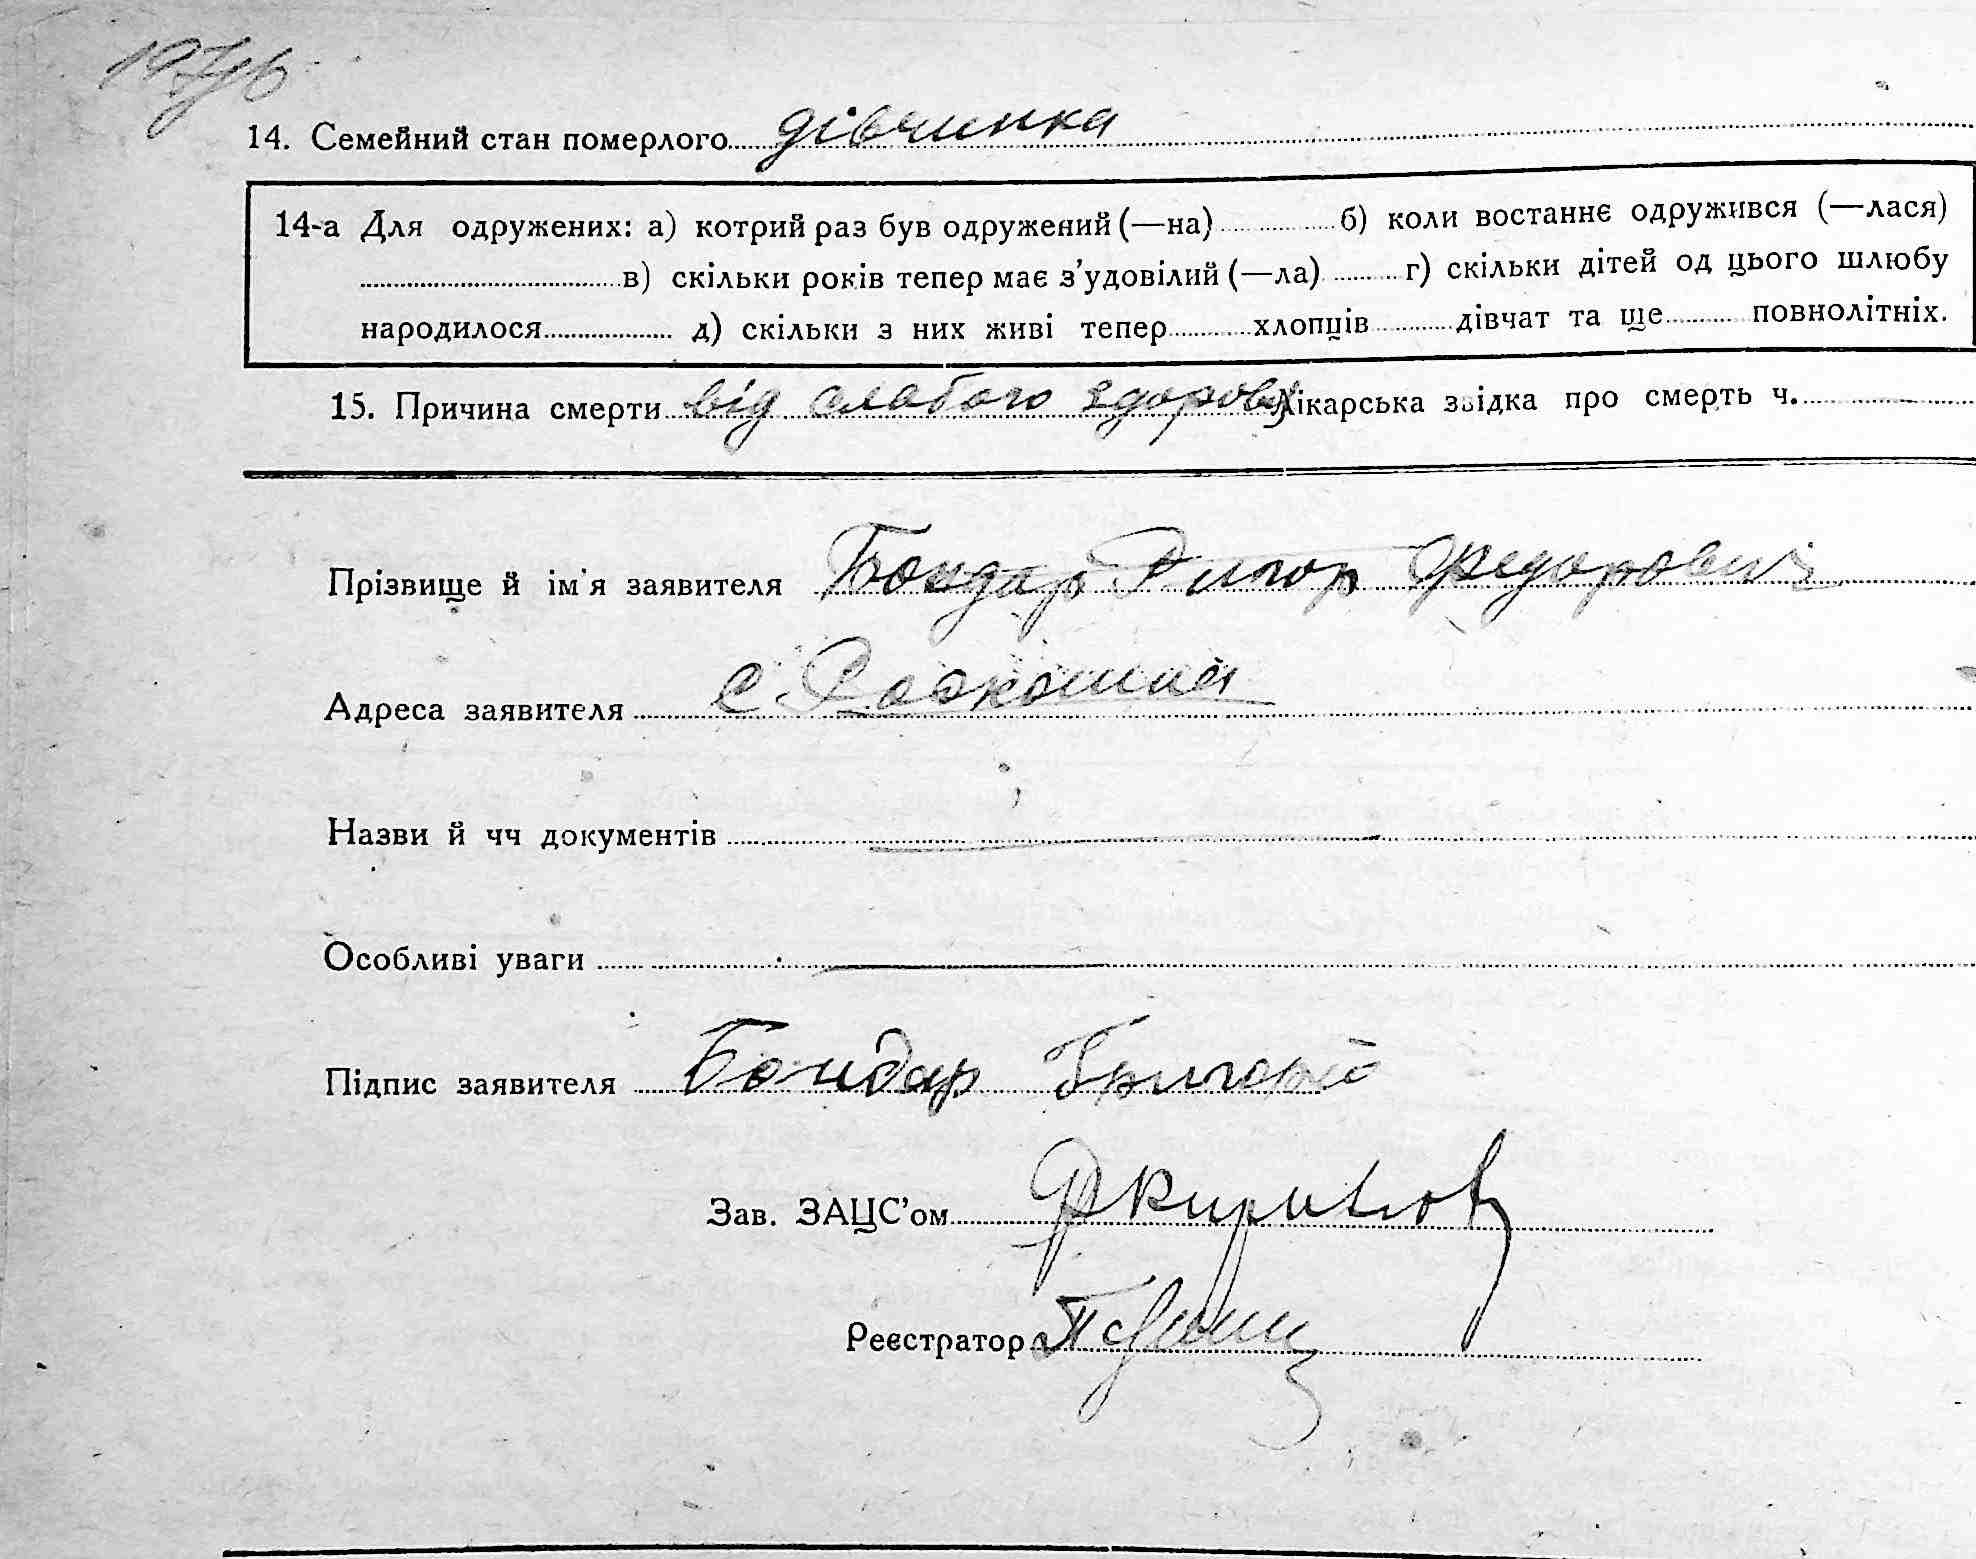 14. Семейний стан померлого дівчинка
14-а Для одружених: а) котрий раз був одружений (—на) б) коли востаннє одружився (—лася)
в) скільки років тепер має з’удовілий (—ла) г) скільки дітей од цього шлюбу
народилося д) скільки з них живі тепер хлопців дівчат та ще повнолітніх.
15. Причина смерти від слабого здоровя Лікарська звідка про смерть ч.
Прізвище й ім'я заявителя Бондар Григор Федорович
Адреса заявителя с.
Назви й чч документів —
Особливі уваги —
Підпис заявителя Бондар Григорій
Зав. ЗАЦС’ом
Реєстратор